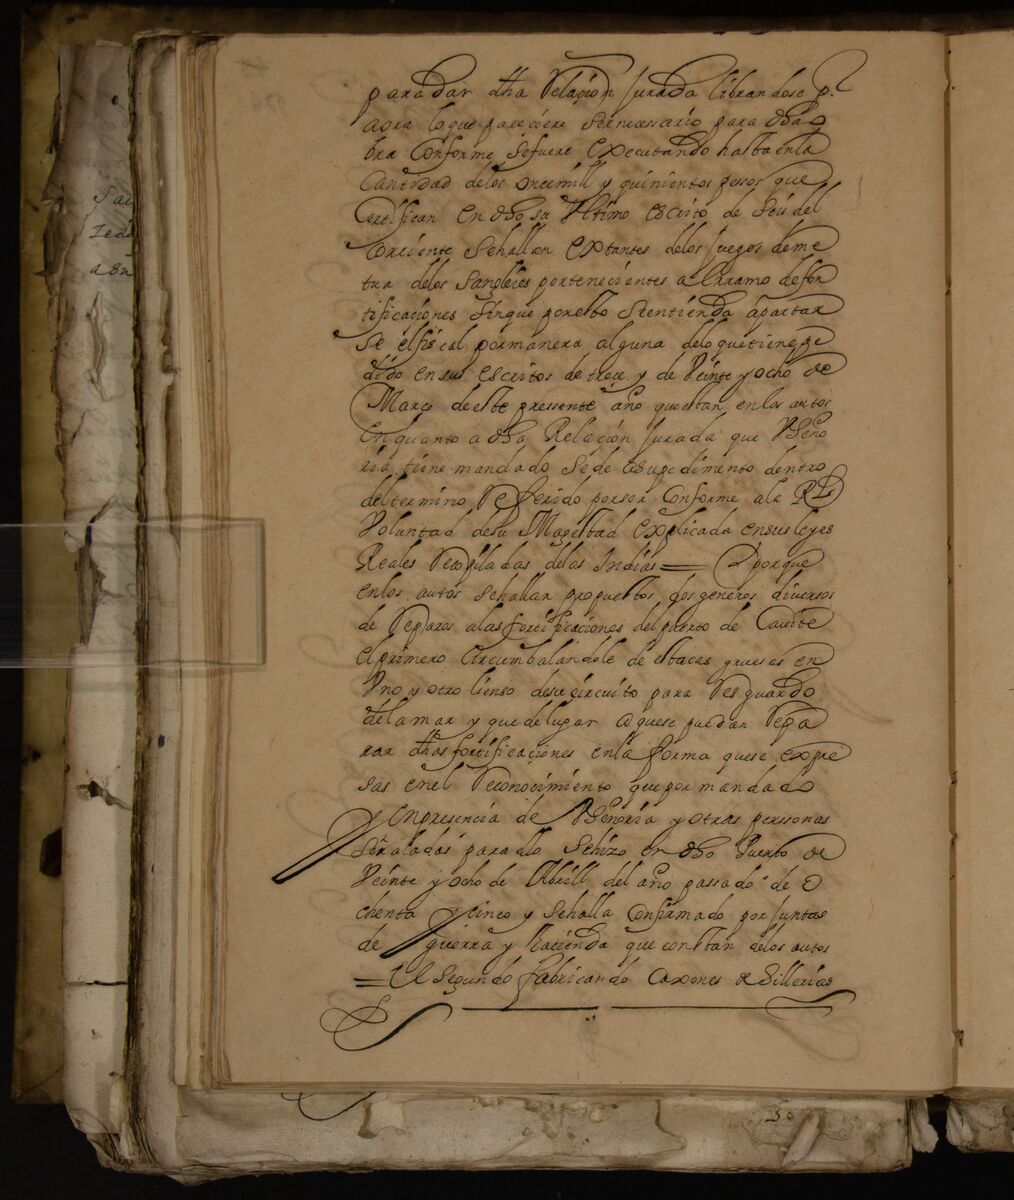 para dar dha Relaçion Jurada librandose p.r
aora lo que pareciere ser necessario para dha o
bra Conforme sefuere executando hasta en la
Cantidad delos oncemill y quinientos pesos que
Certifican en dho su Ultimo escrito de seis del
Corriente sehallan extantes delos Juegos deme
tra delos Sangleies pertenecientes al Rramo defor
tificaciones sinque poresto seentienda apartar
se elfiscal pormanera alguna delo que tiene pe
dido en sus escritos de trece y de Veinte y ocho de
Março deeste pressente año que estan en los autos
en quanto a dha Relaçion Jurada que VSeño
ria tiene mandado sede asupedimento dentro
deltermino Referido porser Conforme ala Rl
Voluntad desu Magestad explicada ensus leyes
Reales Recopiladas delas Indias = Y porque
enlos autos sehallan propuestos dos generos diversos
de Reparos alas fortificaciones del puerto de Cavite
el primero circumbalandole de estacas gruesas en
Uno y otro lienso desu circuito para Resguardo
dela mar y que de lugar a quese puedan Repa
rar dhas fortificaciones en la forma quese expre
sas enel Reconocimiento que por mandado
y en presencia de VSeñoria y otras perssonas
señaladas para ello sehizo en dho Puerto de
Veinte y ocho de Abrill del año passado de o
chenta y cinco y sehalla Confirmado por Juntas
de guerra y hacienda que constan delos autos
= El segundo fabricando Caxones de Sillerias
Sai
25